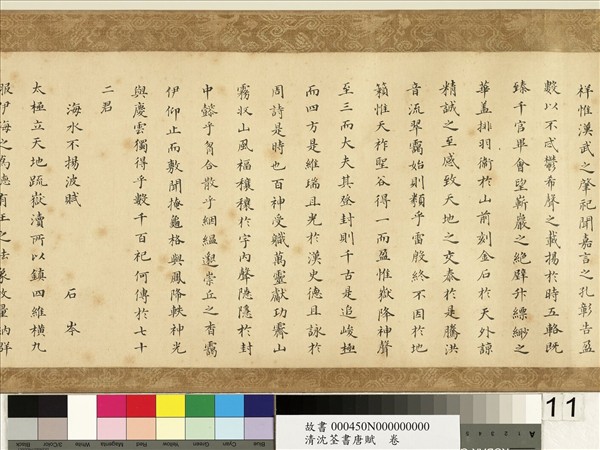 祥惟漢武之肇祀聞嘉言之孔彰告盈
數以不忒鬱希聲之載揚於時五輅既
臻千官畢會望嶄巖之絕壁升縹緲之
華蓋排羽衛於山前刻金石於天外諒
精誠之至感致天地之交泰於是騰洪
音流翠靄始則類乎雷殷終不因於地
籟惟天祚聖谷得一而盈惟嶽降神聲
至三而大夫其登封則千古是追峻極
而四方是維瑞且光於漢史德且詠於
周詩是時也百神受職萬靈獻功霽山
霧收山風福穰穰於宇內聲隱隱於封
中懿乎翕合散乎絪縕邈崇丘之杳靄
伊仰止而敷聞掩龜格與鳳降軼神光
與慶雲獨得乎數千百祀何傳於七十
二君
海水不揚波賦 石岑
太極立天地疏嶽瀆所以鎮四維橫九
服伊海之為德有王之法象故量納群
Black 3/Color White Magenta Red Yellow Green Cyan Blue
A
11
故書 000450N000000000
清沈荃書唐賦 卷